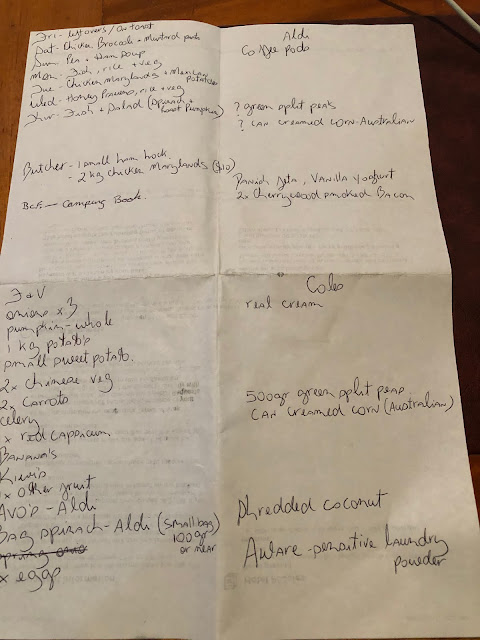 Fri - leftovers / Out or at
Sat - Chicken Brocoli + Mustard pasta
Sun - Pea + Ham Soup
Mon - Fish, rice + veg
Tue - Chicken Marylands + Mexican
Potatoes
Wed - Honey Prawns, rice + veg
Thur - Fish + Salad (Spinach +
roast Pumpkin)
Butcher - 1 small ham hock.
- 2 kg Chicken Marylands ($10)
BCF - Camping Book.
Aldi
Coffee Pods
? green split peas
? can creamed corn - Australian
Danish Feta, Vanilla Yoghurt
2x Cherrywood smoked Bacon
F + V
onions x 3
pumpkin - whole
1 kg potato's
small sweet potato.
2x Chinese veg
2x Carrots
celery
x red cappsicum
Banana's
Kiwi's
x other fruit
Avo's - Aldi
Bag spinach - Aldi (small bag)
100gr
or near
x eggs
Coles
real cream
500gr green split peas
can creamed corn (Australian)
Shredded coconut
Aware - sensitive laundry
powder